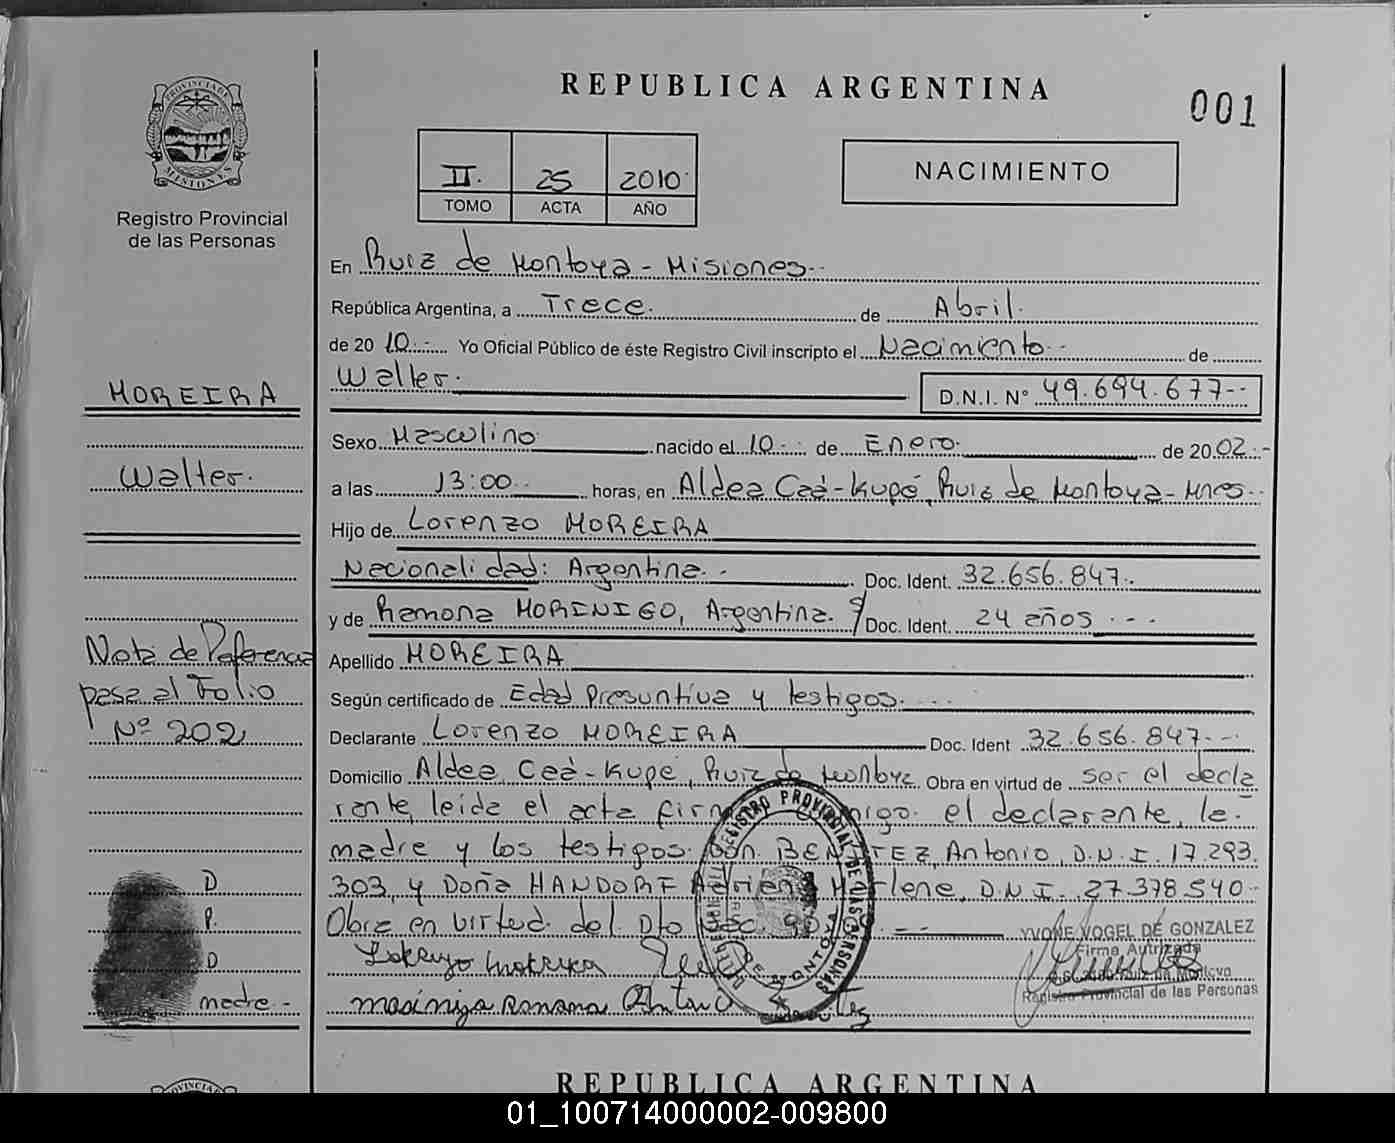 REPUBLICA ARGENTINA
001
PROVINCIA DE
MISIONES
Registro Provincial
de las Personas
II. 25 2010
TOMO ACTA AÑO
NACIMIENTO
En Ruiz de Montoya - Misiones.
República Argentina, a Trece. de Abril.
de 20 10.- Yo Oficial Público de éste Registro Civil inscripto el Nacimiento - de
Walter. D.N.I. N° 49.694.677--
MOREIRA
Walter.
Sexo Masculino nacido el 10 de Enero. de 20 02.-
a las 13:00 horas, en Aldea Caá-Kupé, Ruiz de Montoya- Mnes.
Hijo de Lorenzo MOREIRA
Nacionalidad: Argentina.- Doc. Ident. 32.656.847.
y de Ramona MORINIGO, Argentina. S/ Doc. Ident. 24 años ---
Apellido MOREIRA
Según certificado de Edad Presuntiva y testigos.---
Declarante Lorenzo MOREIRA Doc. Ident 32.656.847.--
Domicilio Aldea Caá-Kupé, Ruiz de Montoya. Obra en virtud de ser el decla
rante, leída el acta el declarante, la
madre y los testigos. Antonio, D.N.I. 17.293.
303, y Doña HANDORF D.N.I. 27.378.540-
Obra en virtud del Dto
Nota de Referencia
pasa al Folio
Nº 202
D
P.
D
madre -
YVONE VOGEL DE GONZALEZ
Firma Autrizada
Registro Provincial de las Personas
REGISTRO PROVINCIAL DE LAS PERSONAS
REPUBLICA ARGENTINA
01_100714000002-009800